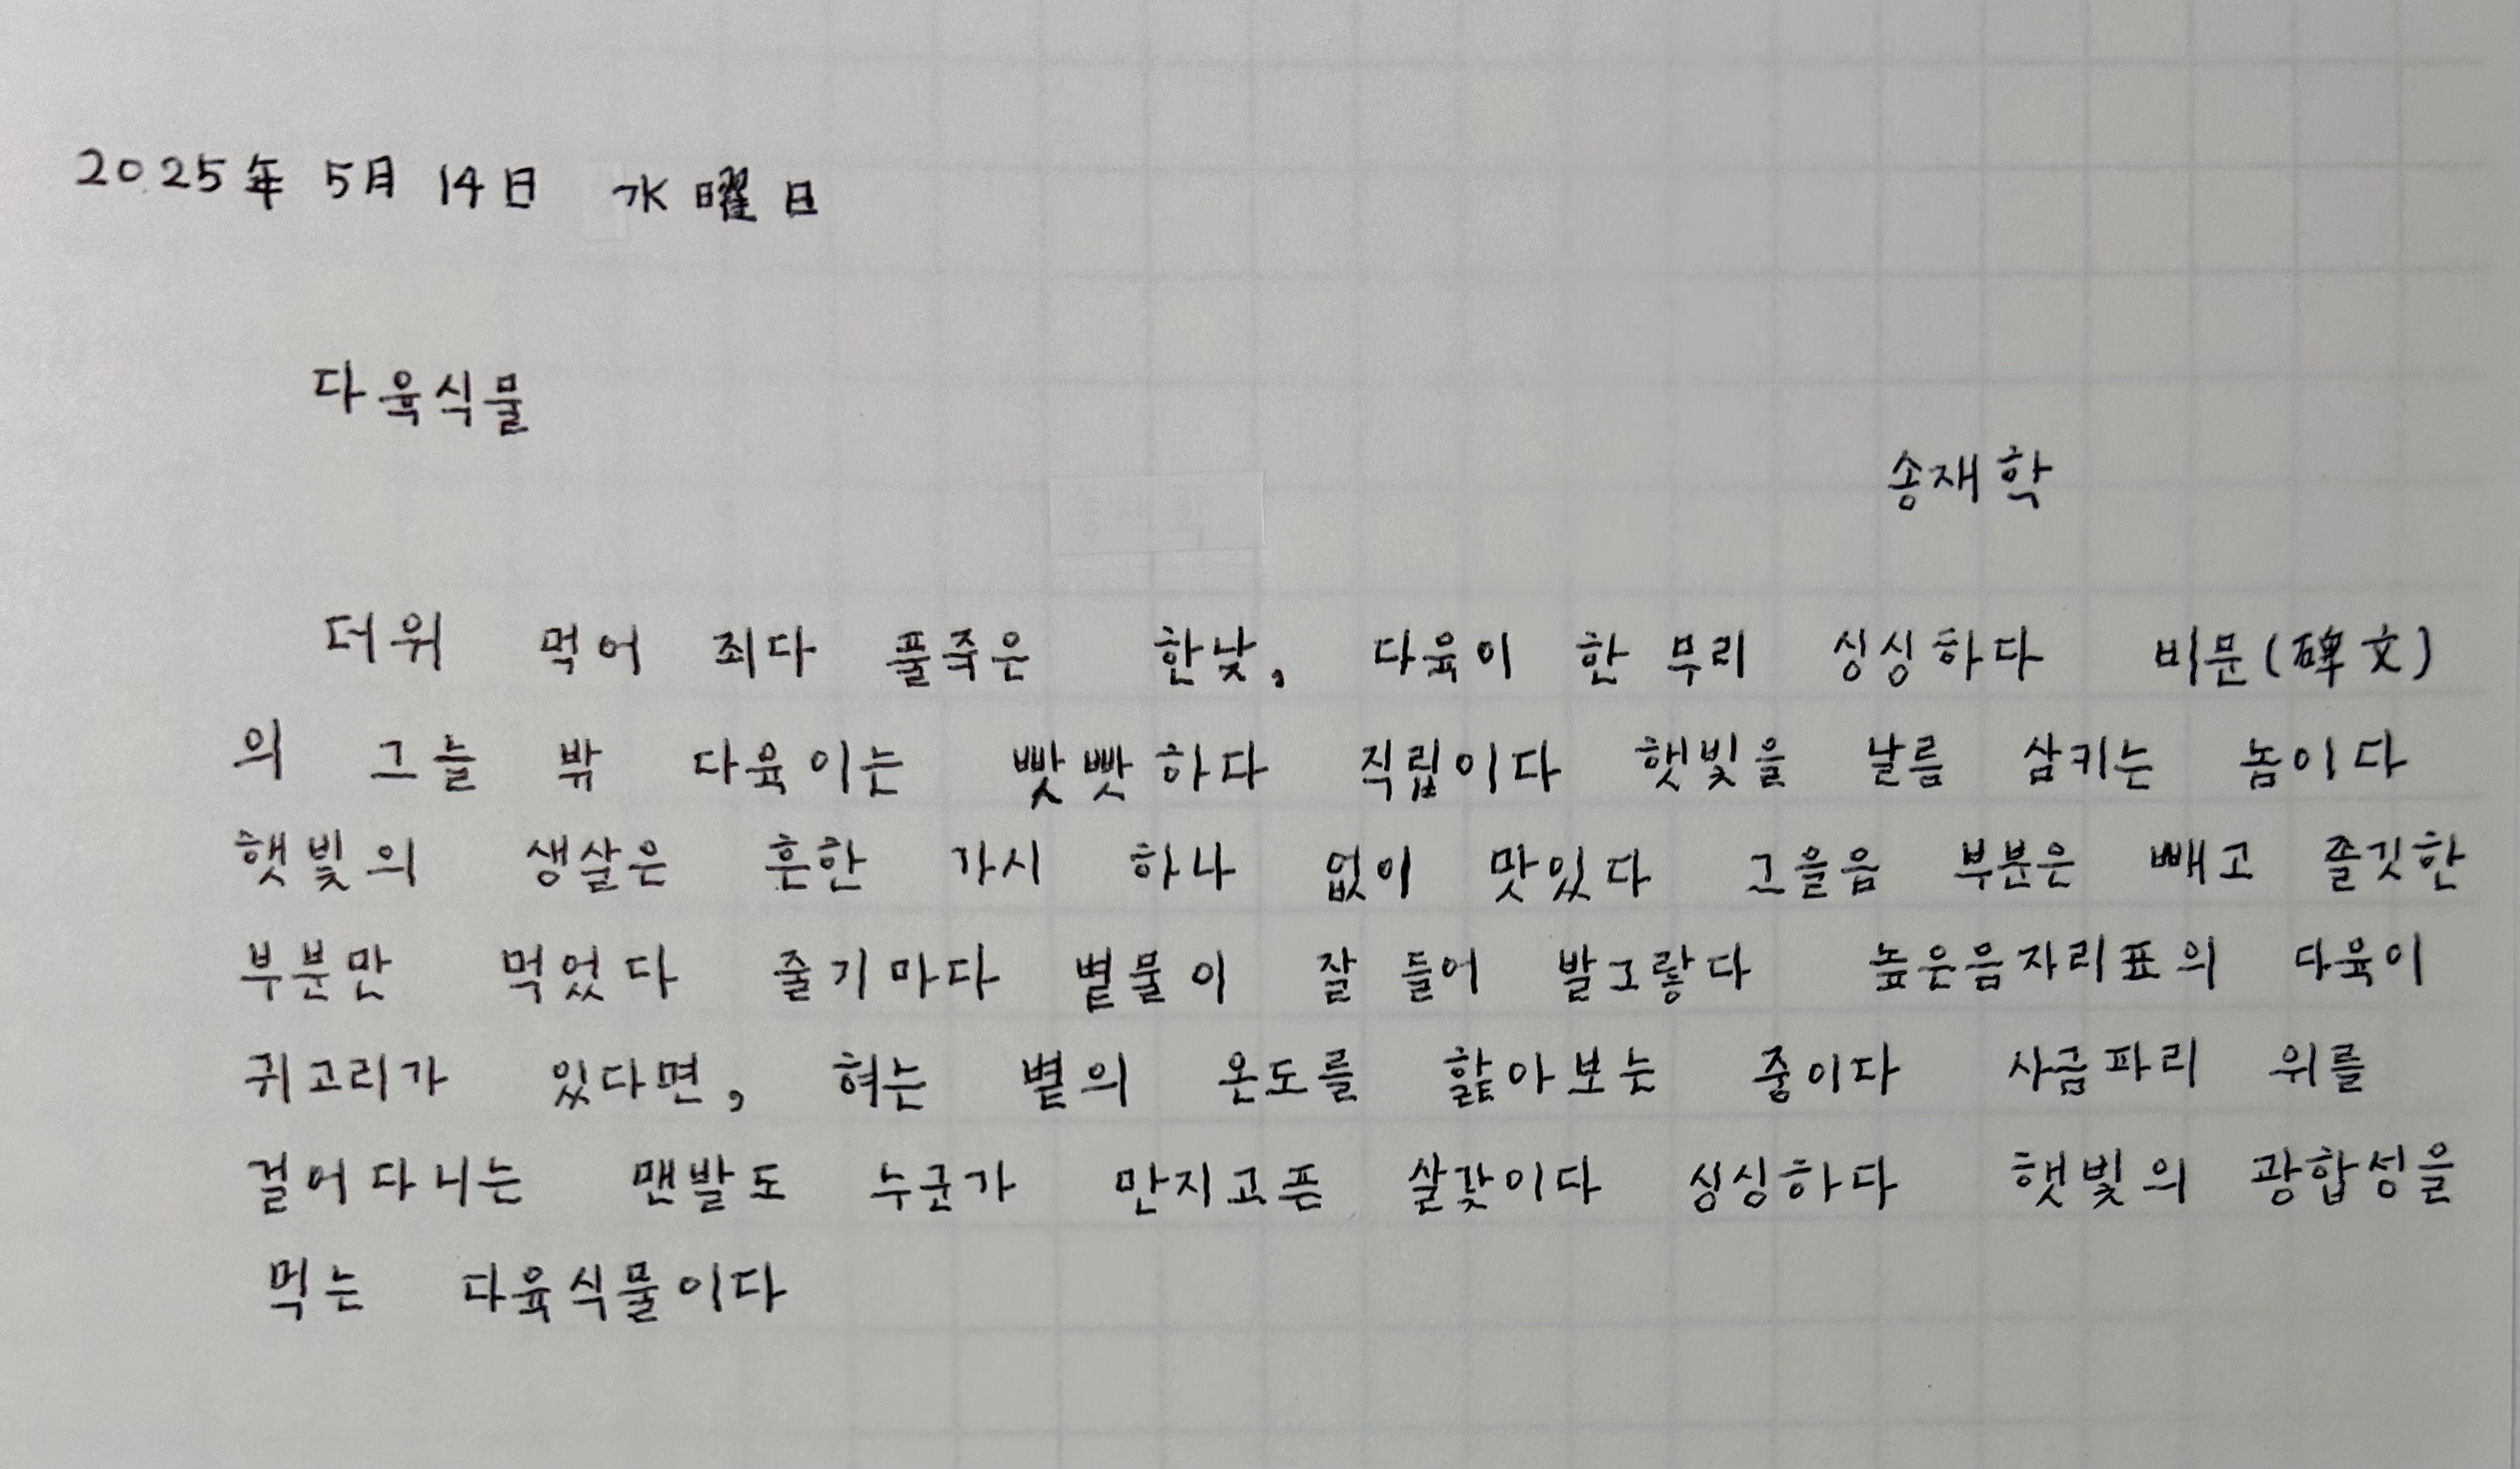 2025年 5月 14日 水曜日
다육식물
송재학
더위 먹어 죄다 풀죽은 한낮, 다육이 한 무리 싱싱하다 비문(碑文)
의 그늘 밖 다육이는 빳빳하다 직립이다 햇빛을 날름 삼키는 놈이다
햇빛의 생살은 흔한 가시 하나 없이 맛있다 그을음 부분은 빼고 쫄깃한
부분만 먹었다 줄기마다 볕물이 잘 들어 발그랗다 높은음자리표의 다육이
귀고리가 있다면, 혀는 볕의 온도를 핥아보는 중이다 사금파리 위를
걸어다니는 맨발도 누군가 만지고픈 살갗이다 싱싱하다 햇빛의 광합성을
먹는 다육식물이다